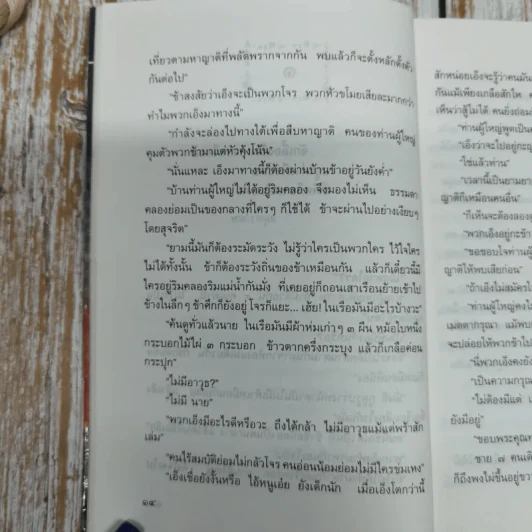 เที่ยวตามหาญาติที่พลัดพรากจากกัน พบแล้วก็จะตั้งหลักตั้งตัว
กันต่อไป”
“ข้าสงสัยว่าเอ็งจะเป็นพวกโจร พวกหัวขโมยเสียละมากกว่า
ทำไมพวกเอ็งมาทางนี้”
“กำลังจะล่องไปทางใต้เพื่อสืบหาญาติ คนของท่านผู้ใหญ่
คุมตัวพวกข้ามาแต่หัวคุ้งโน้น”
“นั่นแหละ เอ็งมาทางนี้ก็ต้องผ่านบ้านข้าอยู่วันยังค่ำ”
“บ้านท่านผู้ใหญ่ไม่ได้อยู่ริมคลอง จึงมองไม่เห็น ธรรมดา
คลองย่อมเป็นของกลางที่ใครๆ ก็ใช้ได้ ข้าจะผ่านไปอย่างเงียบๆ
โดยสุจริต”
“ยามนี้มันก็ต้องระมัดระวัง ไม่รู้ว่าใครเป็นพวกใคร ไว้ใจใคร
ไม่ได้ทั้งนั้น ข้าก็ต้องระวังถิ่นของข้าเหมือนกัน แล้วก็เดี๋ยวนี้มี
ใครอยู่ริมคลองริมแม่น้ำกันมั่ง ที่เคยอยู่ก็ถอนเสาเรือนย้ายเข้าไป
ข้างในลึกๆ ข้าศึกก็ยังอยู่ โจรก็แยะ... เฮ้ย! ในเรือมันมีอะไรบ้างวะ”
“ค้นดูทั่วแล้วนาย ในเรือมันมีผ้าห่มเก่าๆ ๓ ผืน หม้อใบหนึ่ง
กระบอกไม้ไผ่ ๓ กระบอก ข้าวตากครึ่งกระบุง แล้วก็เกลือค่อน
กระปุก”
“ไม่มีอาวุธ?”
“ไม่มี นาย”
“พวกเอ็งมีอะไรดีหรือวะ ถึงได้กล้า ไม่มีอาวุธแม้แต่พร้าสัก
เล่ม”
“คนไร้สมบัติย่อมไม่กลัวโจร คนอ่อนน้อมย่อมไม่มีใครข่มเหง”
“เอ็งเชื่อยังงั้นหรือ ไอ้หนูเอ๋ย ยังเด็กนัก เมื่อเอ็งโตกว่านี้
๑๔
สักหน่อยเอ็งจะรู้ว่าคนมัน
กันแม้เพียงเกลือสักไห
เห็นว่าสู้ไม่ได้ คนยิ่งอ่อน
“ท่านผู้ใหญ่พูดเป็น
“เอ็งว่าจะไปอยู่กะญา
“ใช่แล้วท่าน”
“เวลานี้เป็นยามยา
ญาติก็เหมือนคนอื่น”
“ก็เห็นจะต้องลอง
“พวกเอ็งอยู่กะข้า
“ขอขอบใจท่านผู้
ญาติให้พบเสียก่อน”
“ถ้าเอ็งไม่สมัครใ
“ท่านผู้ใหญ่คงไ
เมตตากรุณา แม้ทา
จะปล่อยให้พวกข้าไป
“นี่พวกเอ็งคงยัง
“เป็นความกรุณ
“ไม่ต้องมีแต่
ยังมีอยู่”
“ขอบพระคุณท
ชาย ๗ คนเดิ
ก็ถึงพงไผ่ขึ้นอยู่ขว